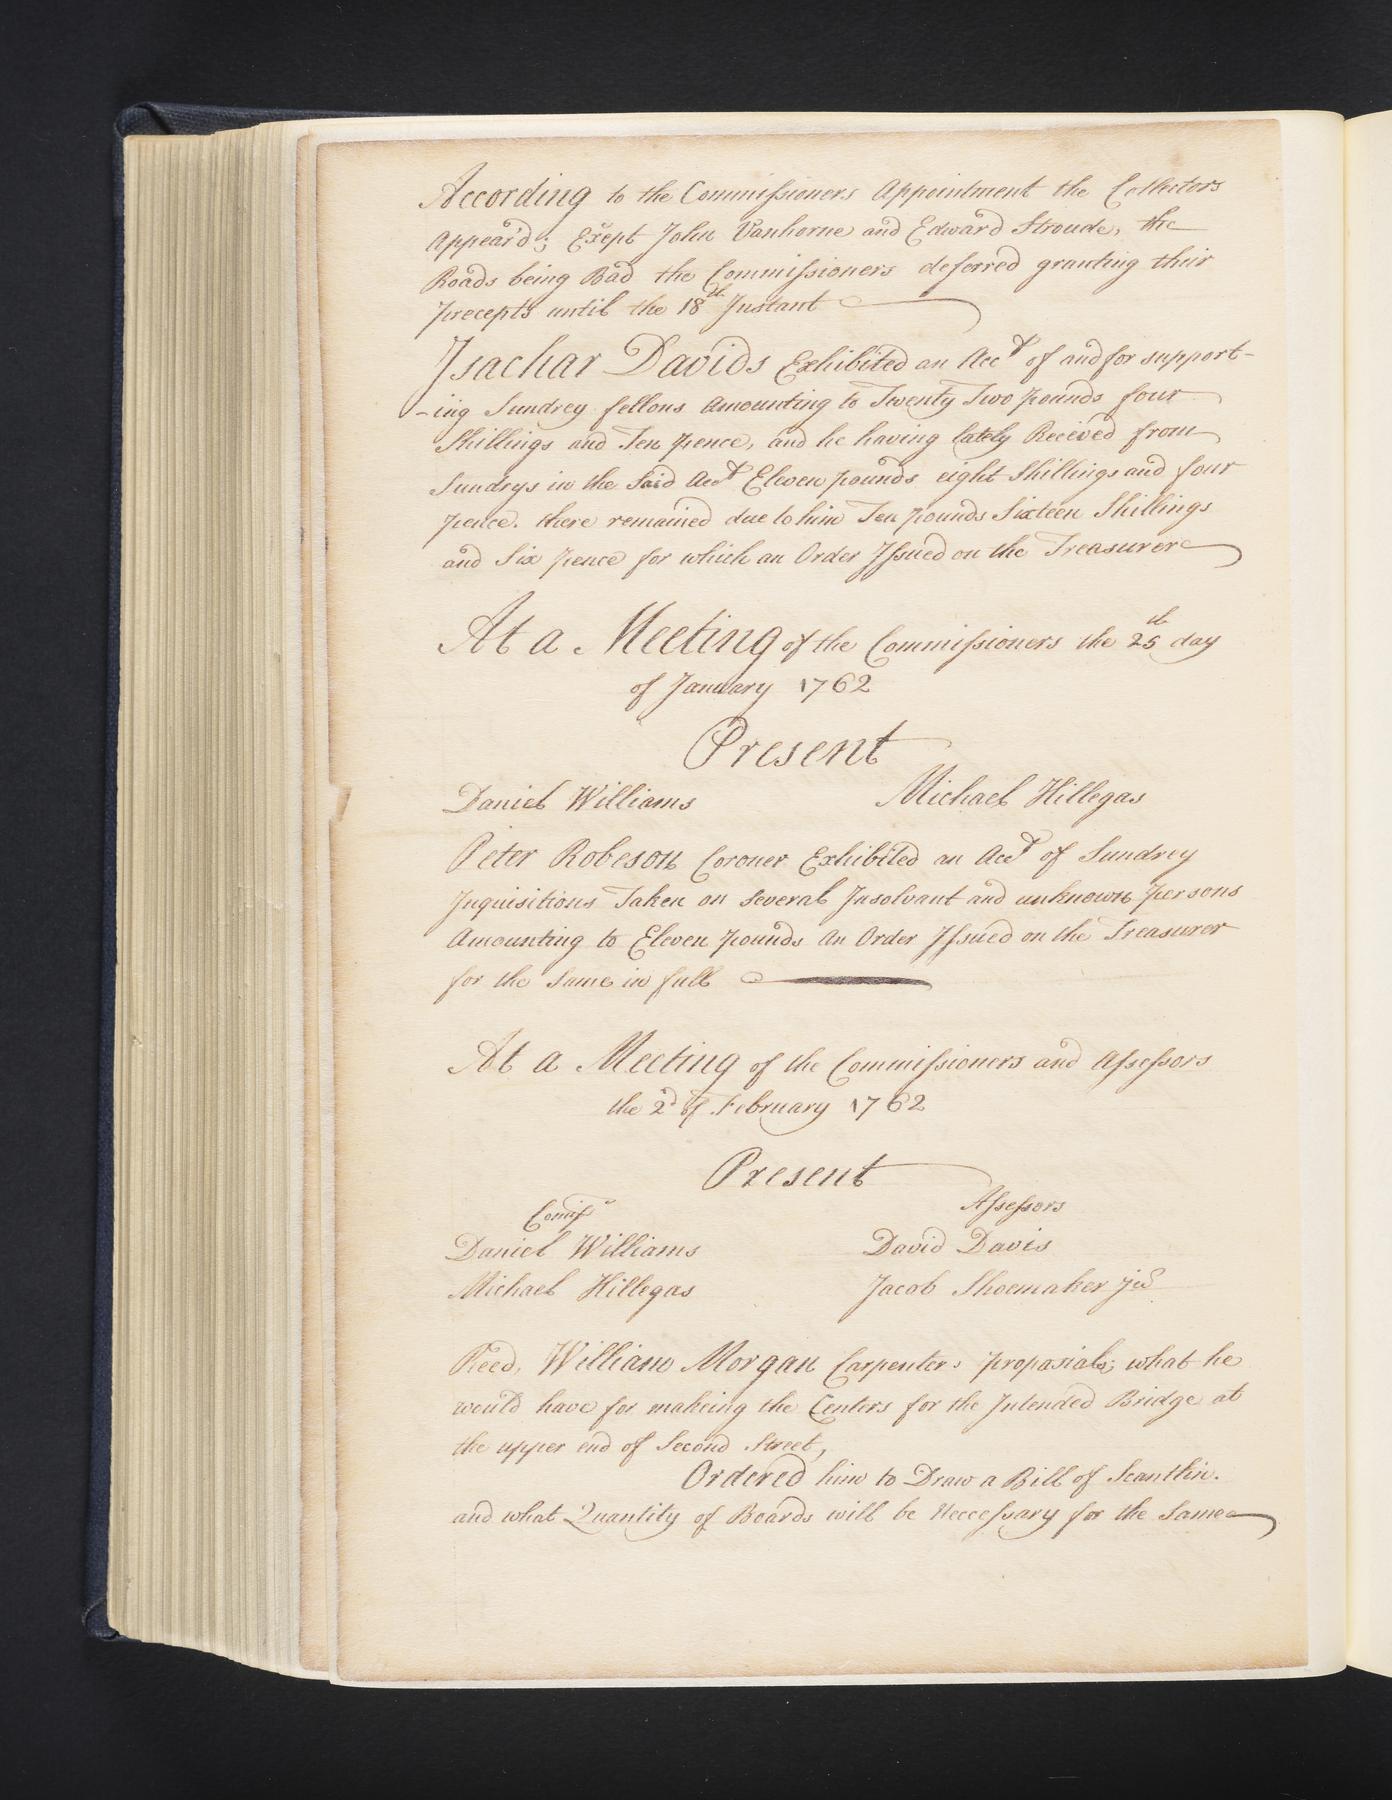 According to the Commissioners Appointment the Collectors
Appear'd; Exept John Vanhorne and Edward Stroude, the
Roads being Bad the Commissioners deferred granting their
precepts until the 18th Instant
Isachar Davids Exhibited an Acct of and for support-
-ing Sundrey fellons Amounting to Twenty Two pounds four
Shillings and Ten pence, and he having lately Received from
Sundrys in the Said Acct Eleven pounds eight Shillings and four
pence. there remained due to him Ten pounds Sixteen Shillings
and Six pence for which an Order Issued on the Treasurer
At a Meeting of the Commissioners the 25th day
of January 1762
Present
Daniel Williams Michael Hillegas
Peter Robeson Coroner Exhibited an Acct of Sundrey
Inquisitions Taken on several Insolvant and unknown persons
Amounting to Eleven pounds An Order Issued on the Treasurer
for the Same in full
At a Meeting of the Commissioners and Assessors
the 2d of February 1762
Present
Comiss Assessors
Daniel Williams David Davis
Michael Hillegas Jacob Shoemaker
Reed, William Morgan Carpenters propasials; what he
would have for makeing the Centers for the Intended Bridge at
the upper end of Second Street,
Ordered him to Draw a Bill of Scantlin.
and what Quantity of Boards will be Neccessary for the Same